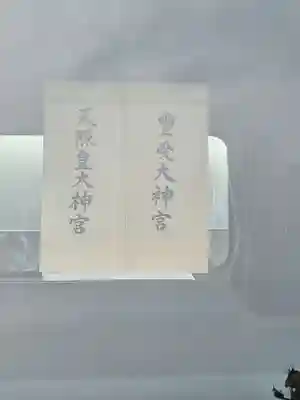 豊受大神宮
天照皇大神宮